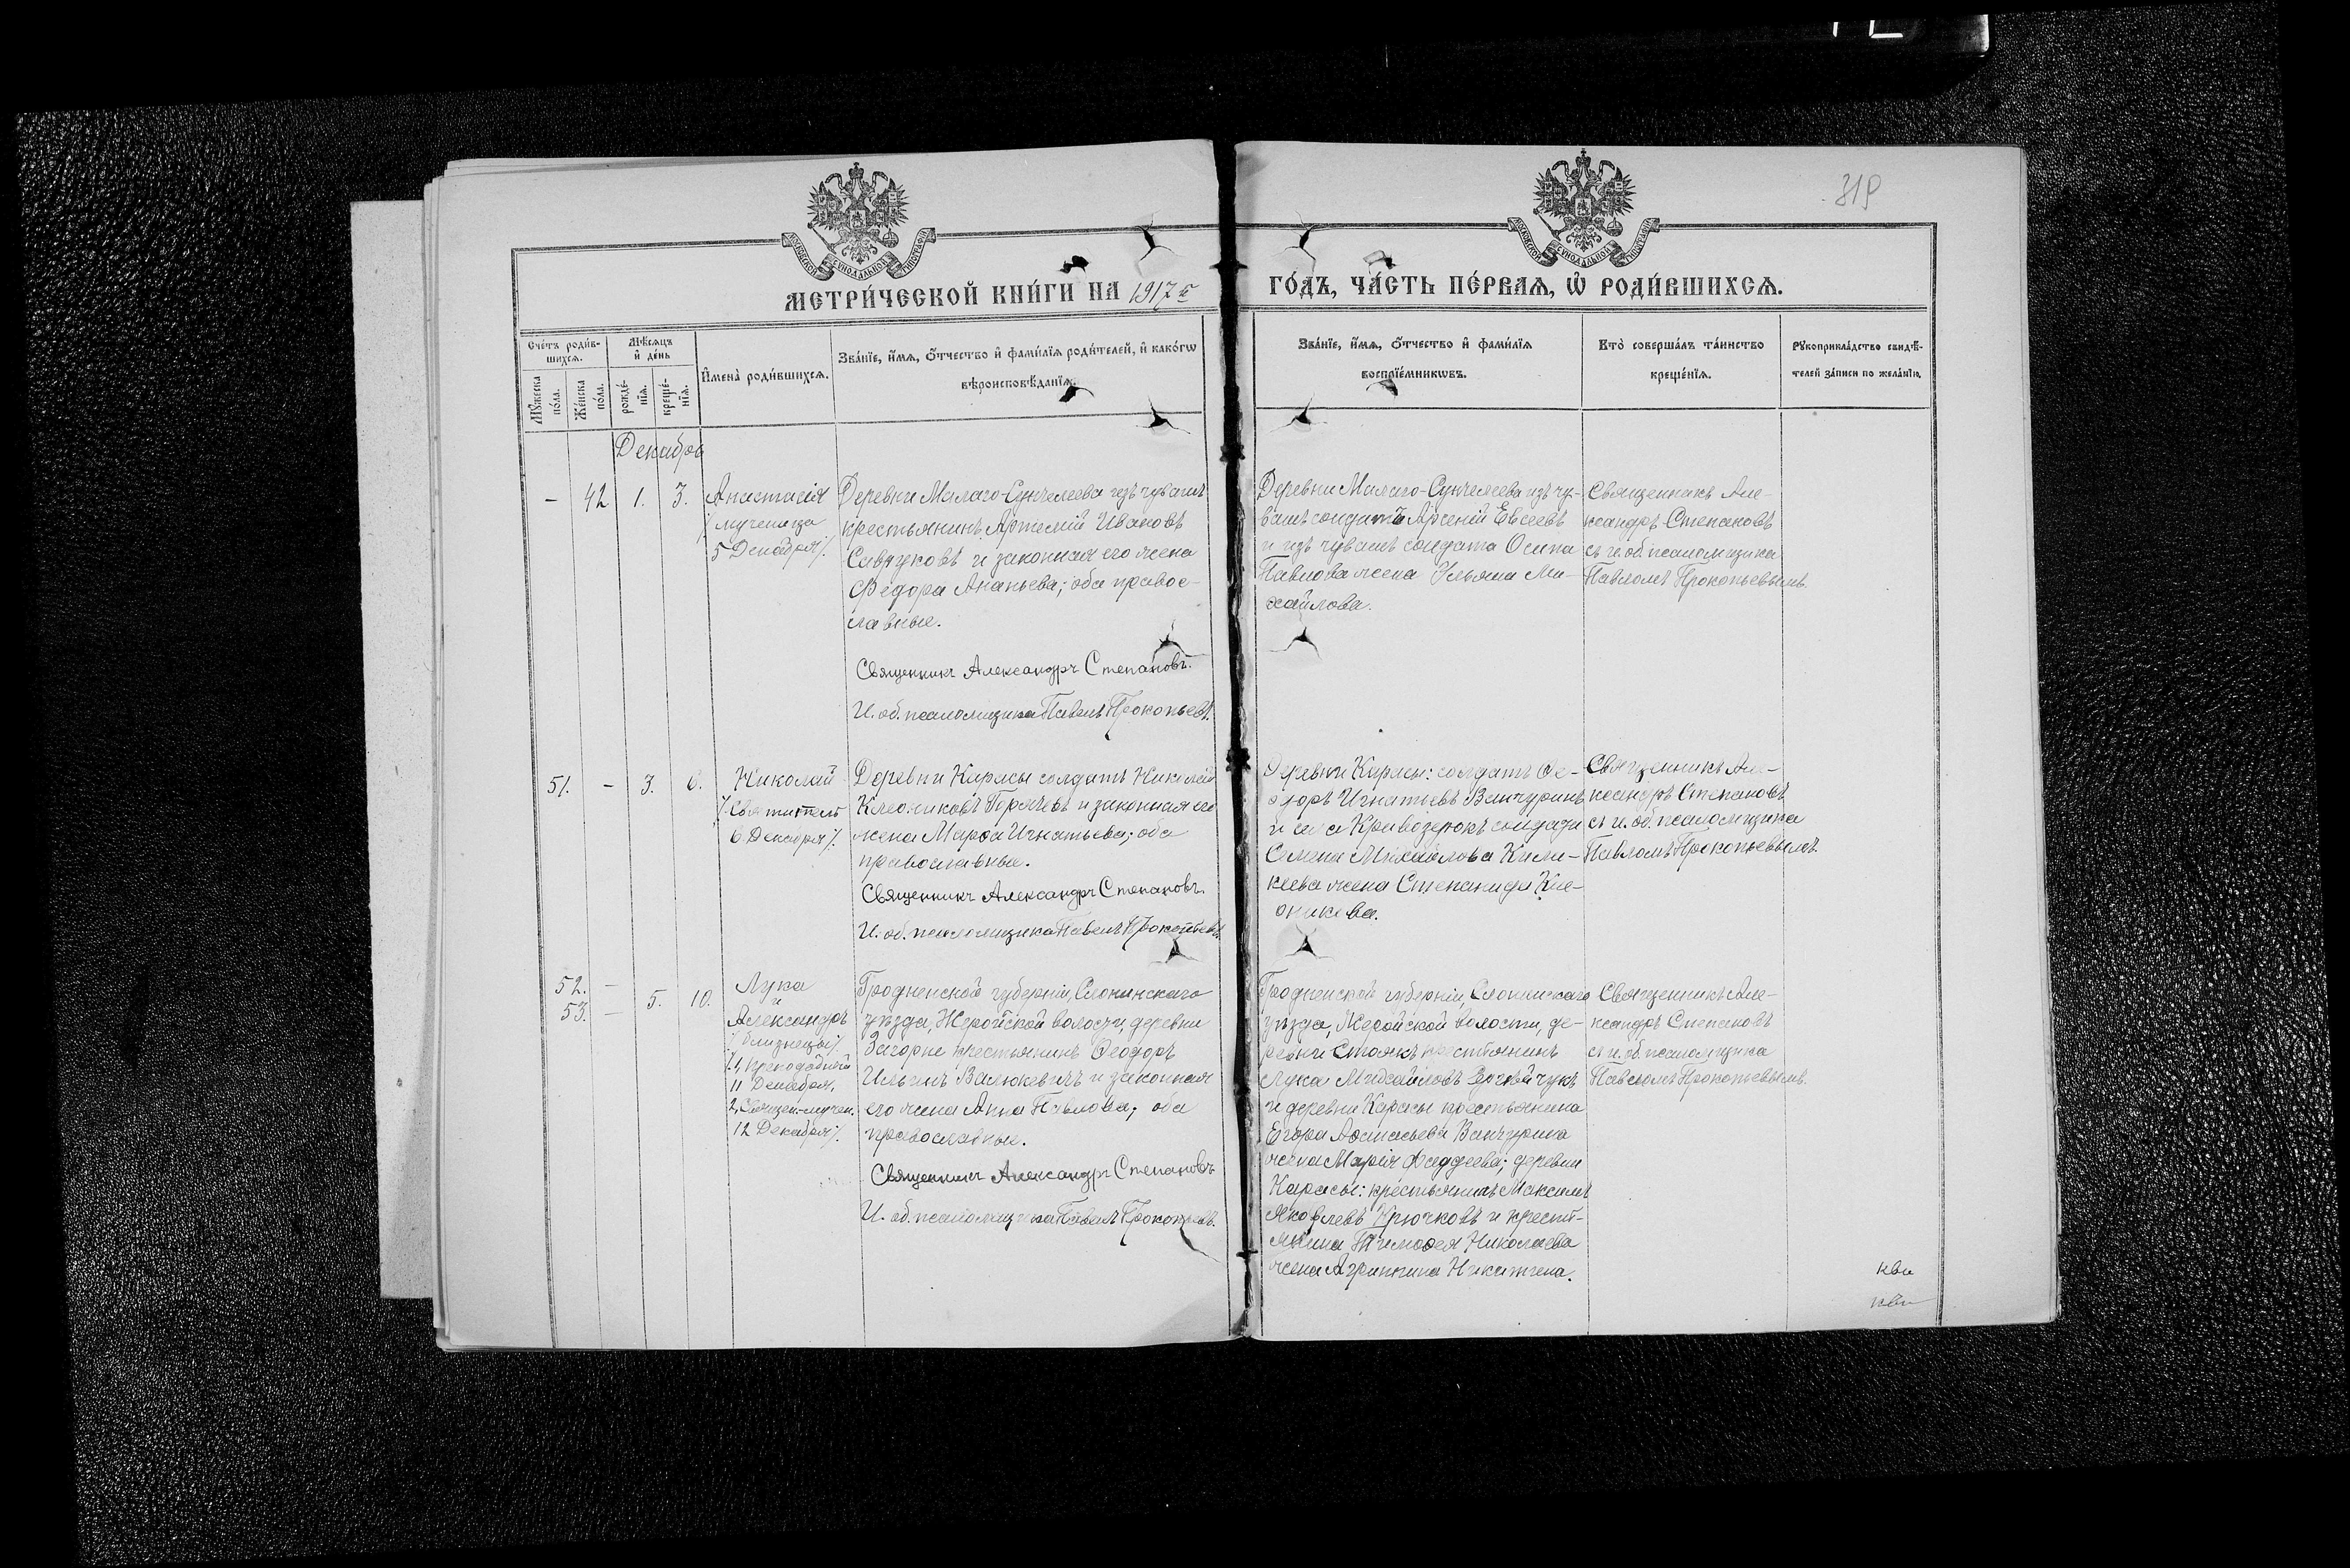 319
МОСКОВСКОЙ СѴНОДАЛЬНОЙ ТИПОГРАФІИ
МОСКОВСКОЙ СѴНОДАЛЬНОЙ ТИПОГРАФІИ
МЕТРИ́ЧЕСКОЙ КНИ́ГИ НА 1917 й
ГО́ДЪ, ЧА́СТЬ ПЕ́РВАѦ, Ѡ҆ РОДИ́ВШИХСѦ.
Сче́тъ роди́в-
шихсѧ.
Мѣ́сѧцъ
и҆ де́нь
Мꙋ́жеска
по́ла.
Же́нска
по́ла.
рожде́-
нїѧ.
креще́-
нїѧ.
И҆мена̀ роди́вшихсѧ.
Зва́нїе, и҆́мѧ, ѻ҆́тчество и҆ фами́лїѧ роди́телей, и҆ како́гѡ
вѣроисповѣ́данїѧ.
Зва́нїе, и҆́мѧ, ѻ҆́тчество и҆ фами́лїѧ
воспрїе́мникѡвъ.
Кто̀ соверша́лъ та́инство
креще́нїѧ.
Рꙋкоприкла́дство свидѣ́-
телей за́писи по жела́нїю.
Декабрь
— 42 1. 3.
Анастасія
/: мученица
5 Декабря :/.
Деревни Малаго-Сунчелеева изъ чувашъ
крестьянинъ Артемій Ивановъ
Савруковъ и законная его жена
Ѳедора Ананьева; оба правос-
лавные.
Священникъ Александръ Степановъ.
И. об. псаломщика Павелъ Прокопьевъ.
Деревни Малаго-Сунчелеева изъ чу-
вашъ солдатъ Арсеній Евсеевъ
и изъ чувашъ солдата Осипа
Павлова жена Ульяна Ми-
хайлова.
Священникъ Але-
ксандръ Степановъ
съ и. об. псаломщика
Павломъ Прокопьевымъ.
51. — 3. 6.
Николай
/: Святитель
6 Декабря :/.
Деревни Карасы солдатъ Николай
Клеониковъ Горячевъ и законная его
жена Марѳа Игнатьева; оба
православные.
Священникъ Александръ Степановъ.
И. об. псаломщика Павелъ Прокопьевъ.
Деревни Карасы: солдатъ Ѳе-
одоръ Игнатьевъ Ванчуринъ
и села Кривозерокъ солдата
Семена Михайлова
жена Степанида Кле-
оникова.
Священникъ Але-
ксандръ Степановъ
съ и. об. псаломщика
Павломъ Прокопьевымъ.
52. —
53. — 5. 10.
Лука
и
Александръ
/: близнецы :/.
/: 1, преподобный
11 Декабря,
2, Священ.-мучен.
12 Декабря :/.
Гродненской губерніи, Слонимскаго
уѣзда, Жеройской волости, деревни
Загорне крестьянинъ Ѳеодоръ
Ильинъ Валюкевичъ и законная
его жена Анна Павлова; оба
православные.
Священникъ Александръ Степановъ
И. об. псаломщика Павелъ Прокопьевъ.
Гродненской губерніи, Слонимскаго
уѣзда, Жеройской волости, де-
ревни Столкъ крестьянинъ
Лука Михайловъ
и деревни Карасы крестьянина
Егора Аѳанасьева Ванчурина
жена Марія Фаддеева; деревни
Карасы: крестьянинъ Максимъ
Яковлевъ Крючковъ и кресть-
янина Тимоѳея Николаева
жена Агриппина Никитина.
Священникъ Але-
ксандръ Степановъ
съ и. об. псаломщика
Павломъ Прокопьевымъ.